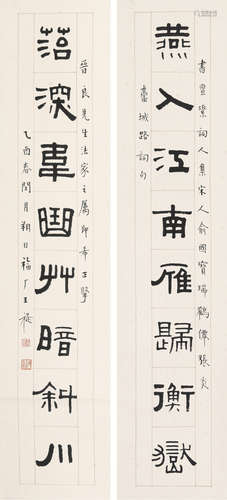 燕入江南雁歸衡嶽
書詞人集宋人俞國寶瑞鶴僊張炎
臺城路詞句
菭深韋曲艸暗斜川
晉良先生法家之屬即希正擘
乙酉春閏月朔日福厂王禔